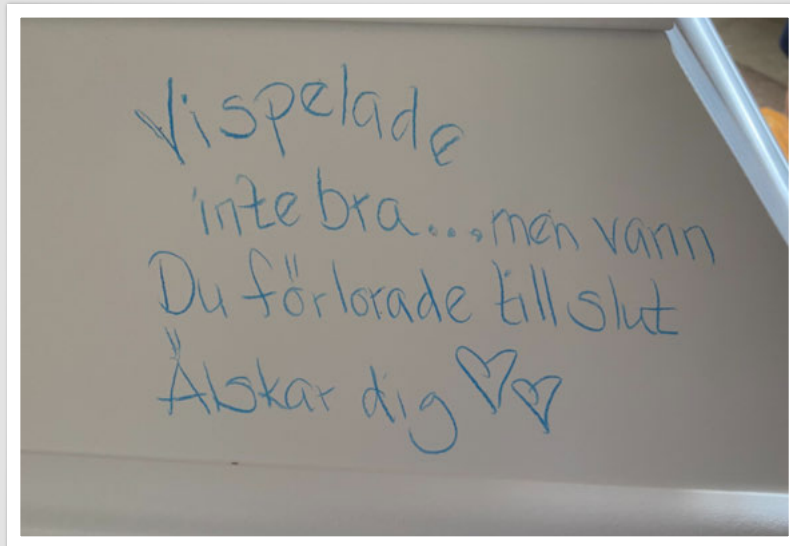 Vispelade
inte bra...men vann
Du förlorade till slut
Älskar dig ♡♡